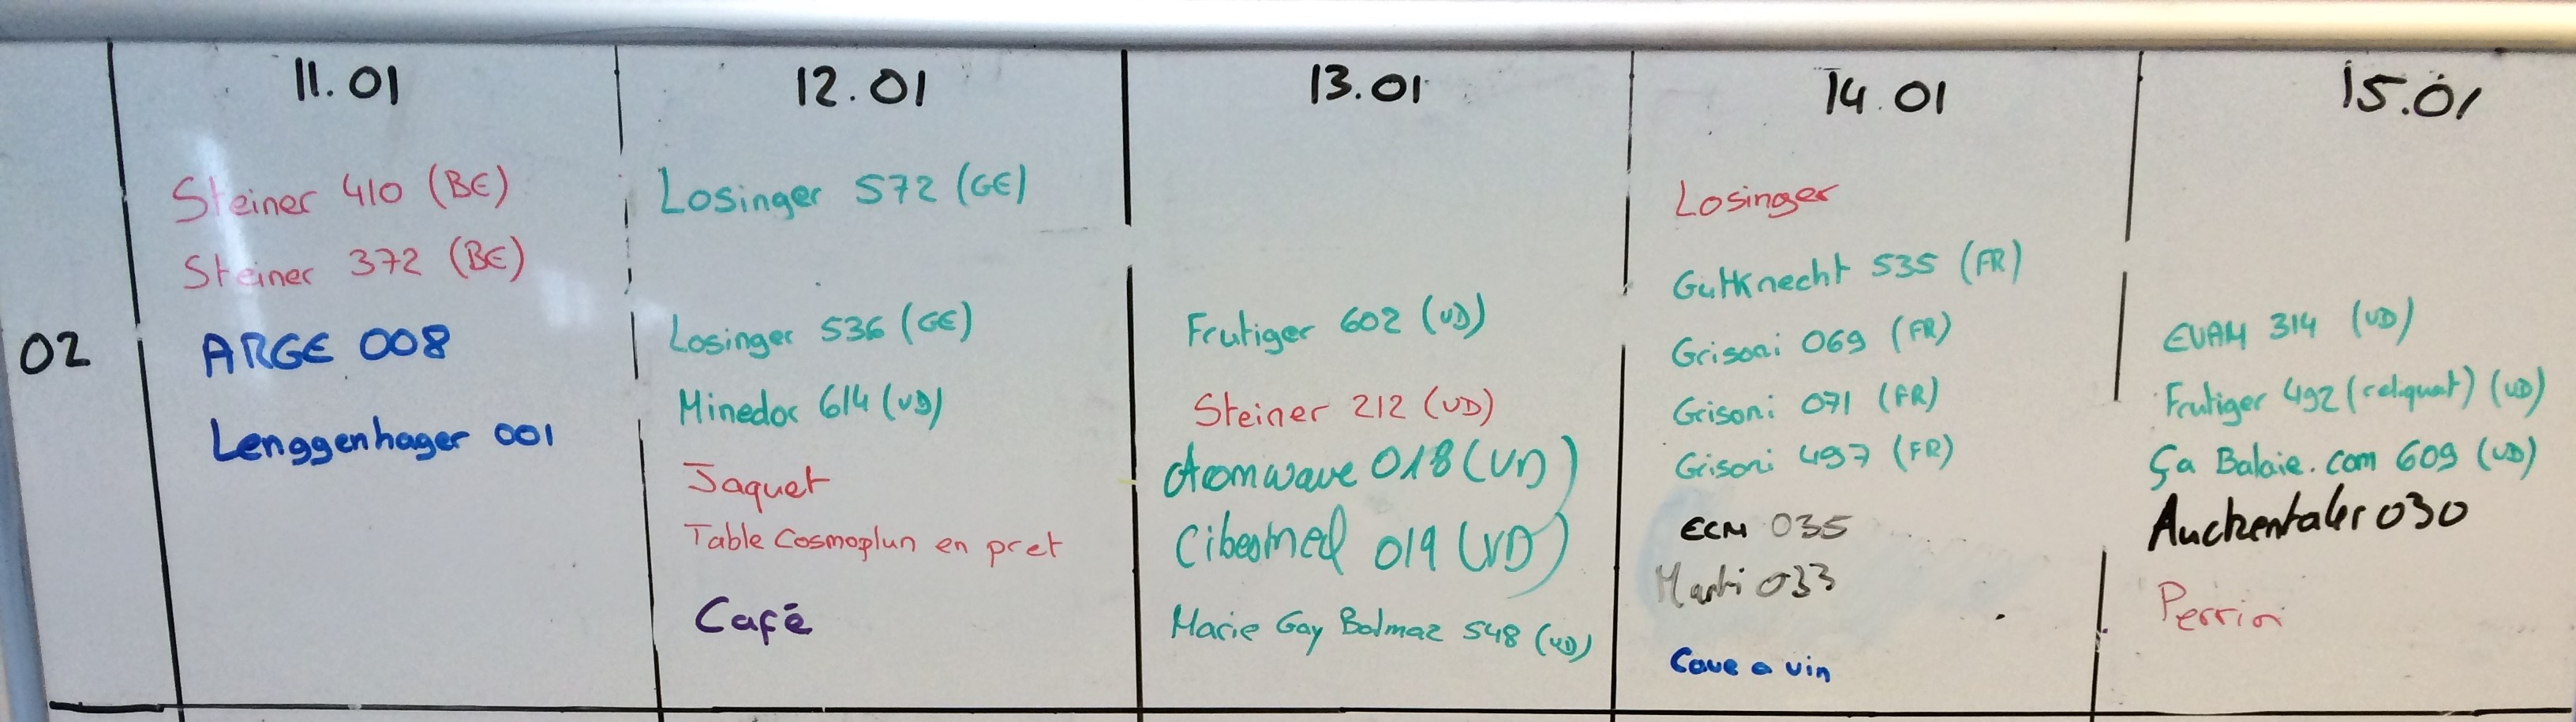 11.01
12.01
13.01
14.01
15.01
02
Steiner 410 (BE)
Steiner 372 (BE)
ARGE 008
Lenggenhager 001
Losinger 572 (GE)
Losinger 536 (GE)
Minedor 614 (VD)
Jaquet
Table Cosmoplun en pret
Café
Frutiger 602 (VD)
Steiner 212 (VD)
Atomwave 018 (VD)
019 (VD)
Marie Gay Balmaz 548 (VD)
Losinger
Gutknecht 535 (FR)
Grisoni 069 (FR)
Grisoni 071 (FR)
Grisoni 497 (FR)
ECM 035
Marti 033
Cave a vin
EVAM 314 (VD)
Frutiger 492 (reliquat) (VD)
Ça Balaie.com 609 (VD)
Auckentaler 030
Perrin